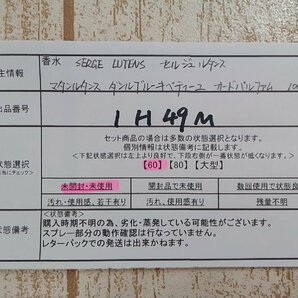 香水 SERGE LUTENS セルジュルタンス
主情報
マタンルタンス ダンルブルーキペティーユ オードパルファム 100
出品番号
1H49M
セット商品の場合は多数の状態となります。
個別情報は状態備考に記載します。
<下記状態選択は左上より良好で、下段右側が一番状態が低くなります。>
状態選択
【60】【80】【大型】
未開封・未使用 開封品で未使用 数回使用で状態良
汚れ・使用感、若干有り 汚れ、使用感有り 残量不明
<状態備考>
状態備考
購入時期不明の為、劣化・蒸発している可能性がございます。
スプレー部分の動作確認は行なっていません。
レターパックでの発送は出来かねます。